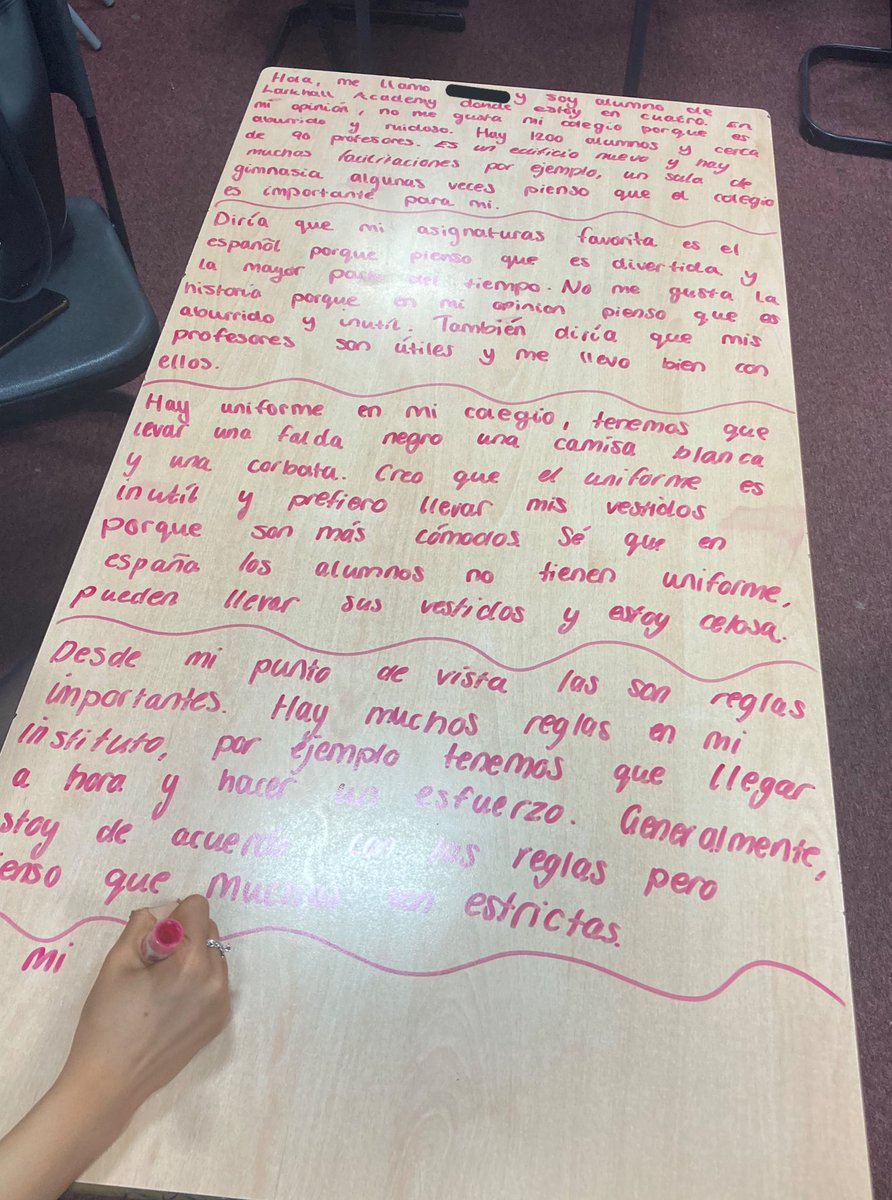 Hola, me llamo y soy alumno de
Larkhall Academy donde estoy en cuatro. En
mi opinión, no me gusta mi colegio porque es
aburrido y ruidoso. Hay 1200 alumnos y cerca
de 90 profesores. Es un edificio nuevo y hay
muchas facilitaciones por ejemplo, un sala de
gimnasia algunas veces pienso que el colegio
es importante para mi.
Diría que mi asignaturas favorita es el
español porque pienso que es divertida y
la mayor parte del tiempo. No me gusta la
historia porque en mi opinion pienso que es
aburrido y inutíl. También diría que mis
profesores son útiles y me llevo bien con
ellos.
Hay uniforme en mi colegio, tenemos que
levar una falda negro una camisa blanca
y una corbata. Creo que el uniforme es
inutíl y prefiero llevar mis vestidos
porque son más cómodos sé que en
españa los alumnos no tienen uniforme,
pueden llevar sus vestidos y estoy celosa.
Desde mi punto de vista las son reglas
importantes. Hay muchos reglas en mi
instituto, por éjemplo tenemos que llegar
a hora y hacer un esfuerzo. Generalmente,
stoy de acuerdo con las reglas pero
ienso que muchas son estrictas.
Mi